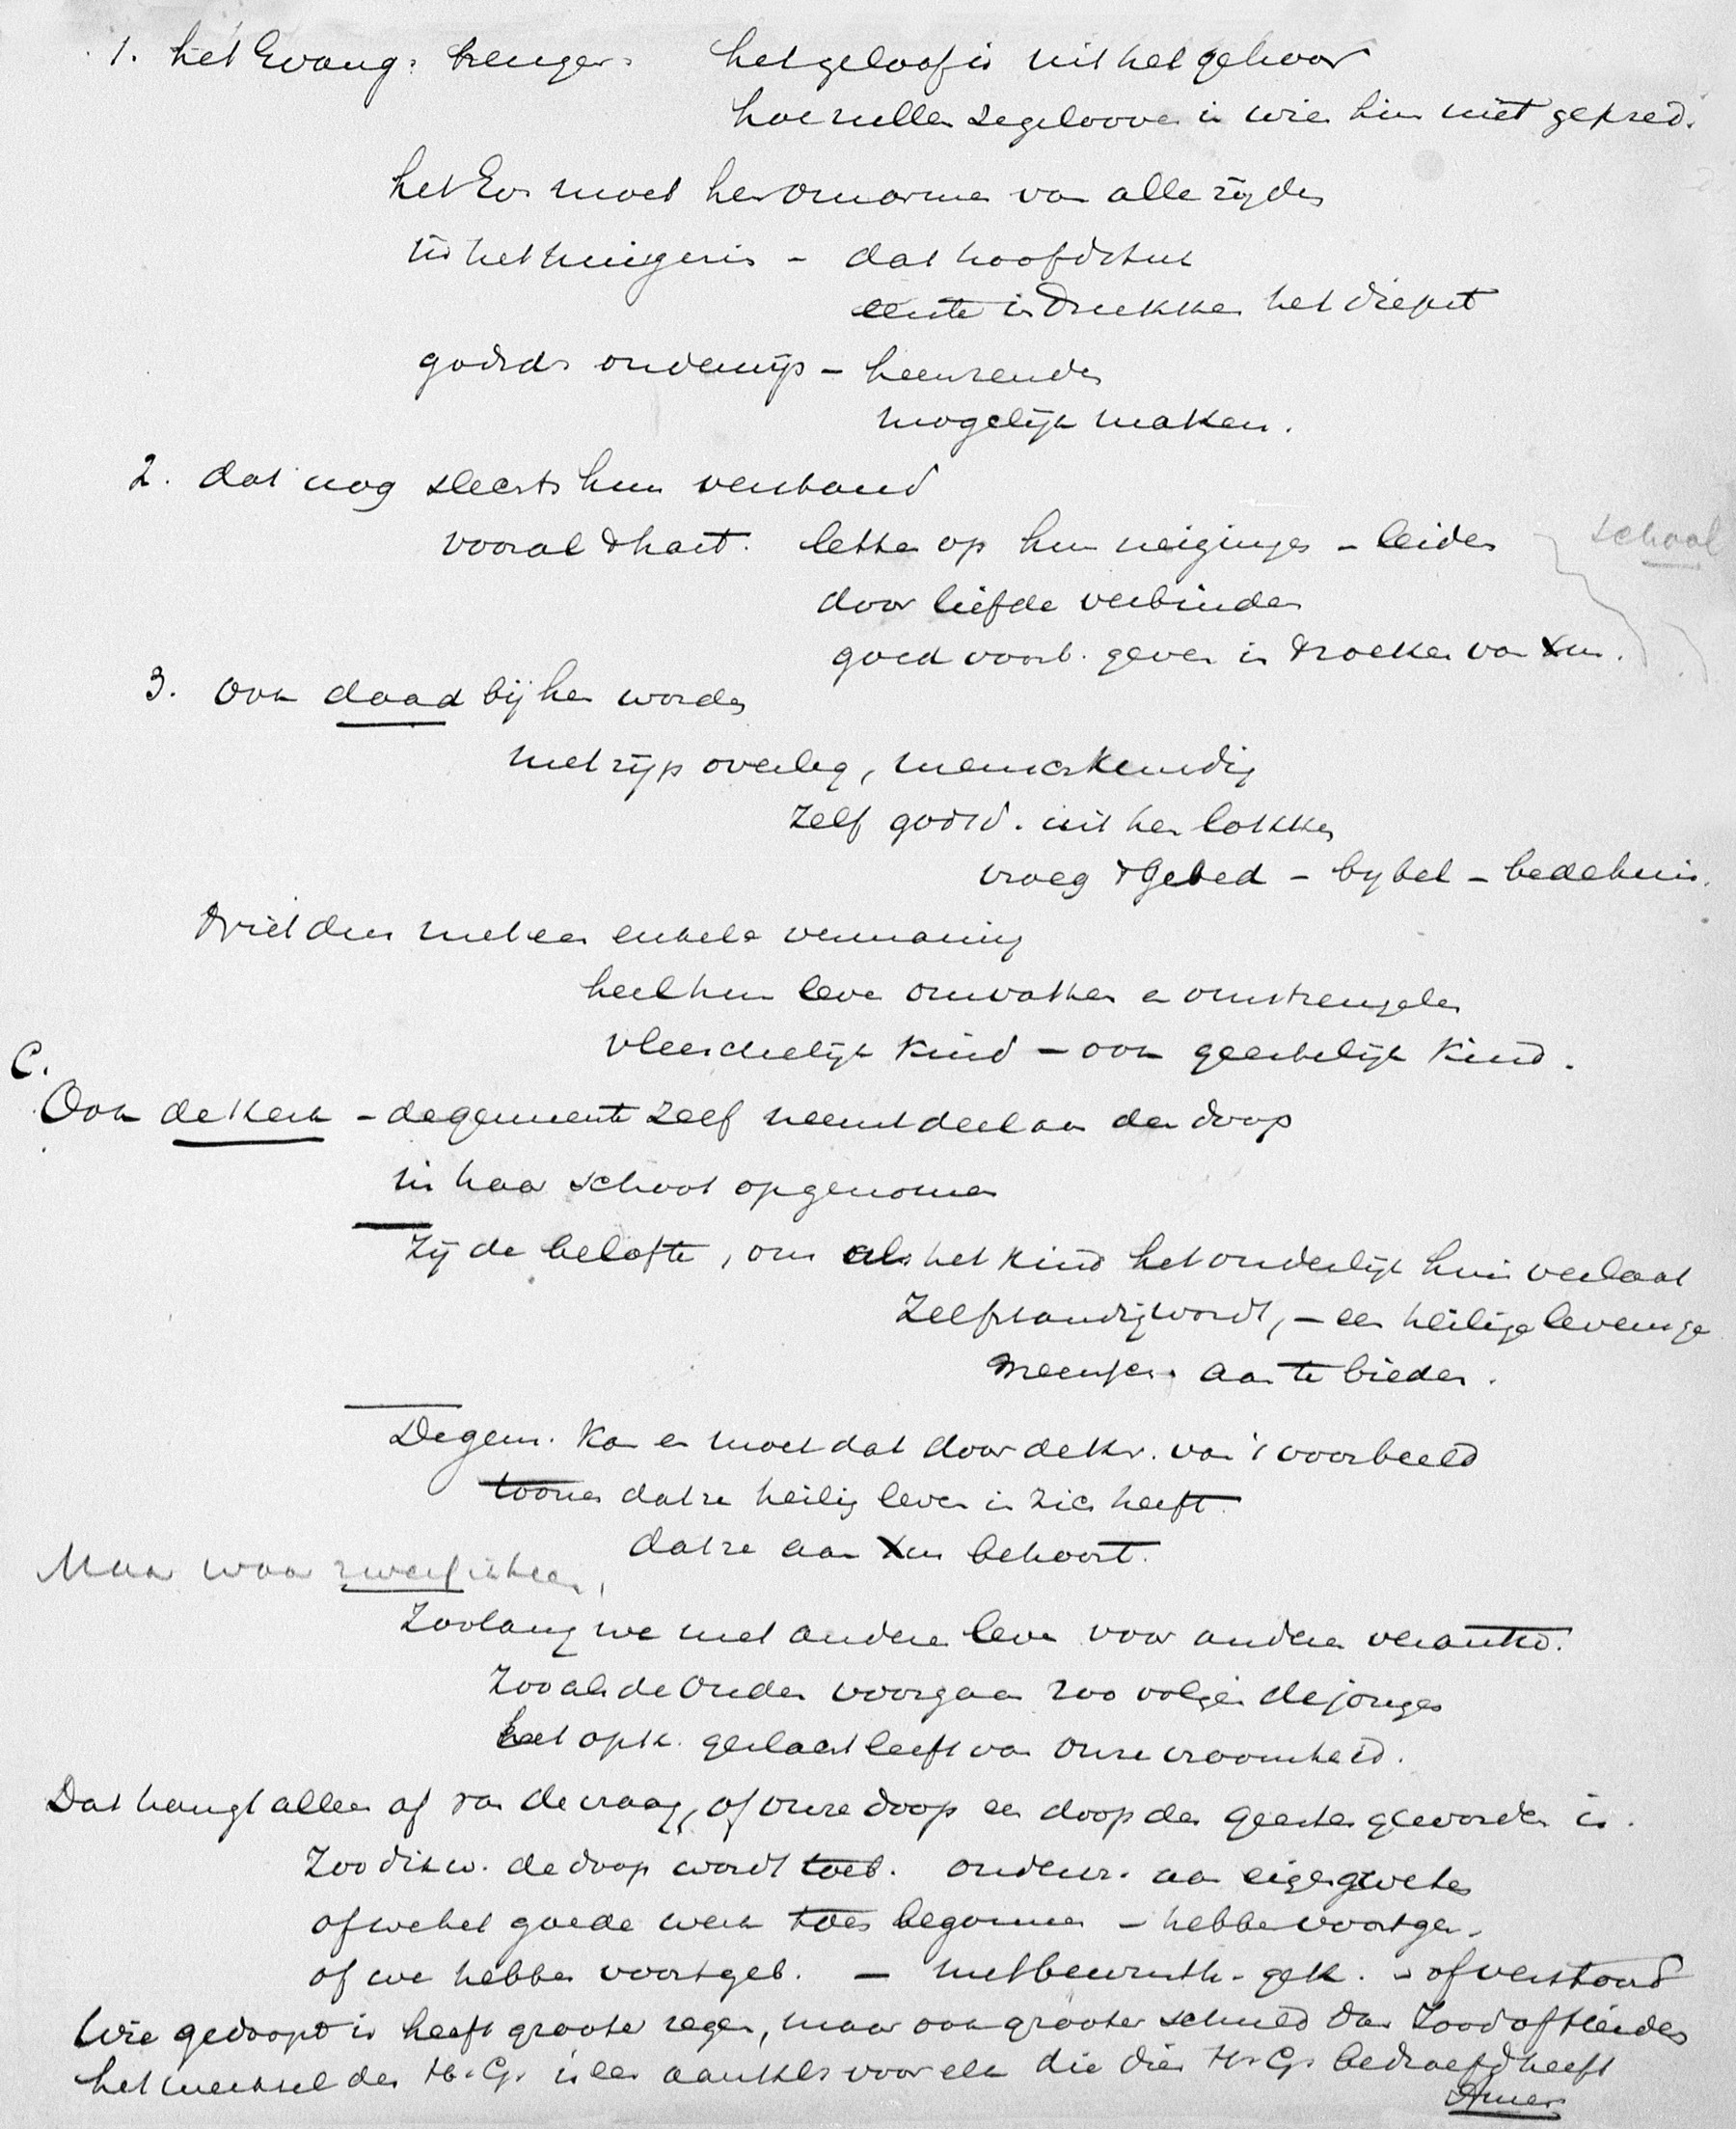 1. het Evang: brengen. het geloof is uit het gehoor
hoe zullen ze gelooven in wien hun niet gepred.
het Ev. moet hen omarmen van alle zijden
in het huisgezin - dat hoofdstuk
eerste indrukken het diepst
godsd. onderwijs - heenzenden
mogelijk maken.
2. dat nog slechts hun verstand
vooral 't hart. letten op hun neigingen - leiden
school
door liefde verbinden
goed voorb. geven in 't zoeken van Xus.
3. Ook daad bij hen worden
met rijp overleg, menschkundig
Zelf godsd. uit hen lokken
vroeg 't Gebed - bijbel - bedehuis.
Niet dus met een enkele vermaning
heel hun leven omvatten en omstrengelen
vleeschelijk kind - ook geestelijk kind.
C.
Ook de kerk - de gemeente zelf neemt deel aan den doop
in haar schoot opgenomen
Zij de belofte, om als het kind het ouderlijk huis verlaat
Zelfstandig wordt, - een heilige levensge
meensch. aan te bieden.
De gem. kan en moet dat door de kr. van 't voorbeeld
toonen dat ze heilig leven in zich heeft.
dat ze aan Xus behoort.
Maar waar zwerf ik heen,
Zoolang we met anderen leven voor anderen verantw.
Zooals de Ouden voorgaan zoo volgen de jongen
het opk. geslacht leeft van onze vroomheid.
Dat hangt alleen af van de vraag, of onze doop een doop des Geestes geworden is.
Zoo dikw. de doop wordt toeb. onderz. aan eigen geweten
of we het goede werk toen begonnen - hebben voortgez.
of we hebben voortgeb. - met bewusth. gek. - of verstoord
Wie gedoopt is heeft grooter zegen, maar ook grooter schuld dan Jood of Heiden
het werksel des H. G. is een aankl. voor elk die dien H. G. bedroefd heeft
Amen